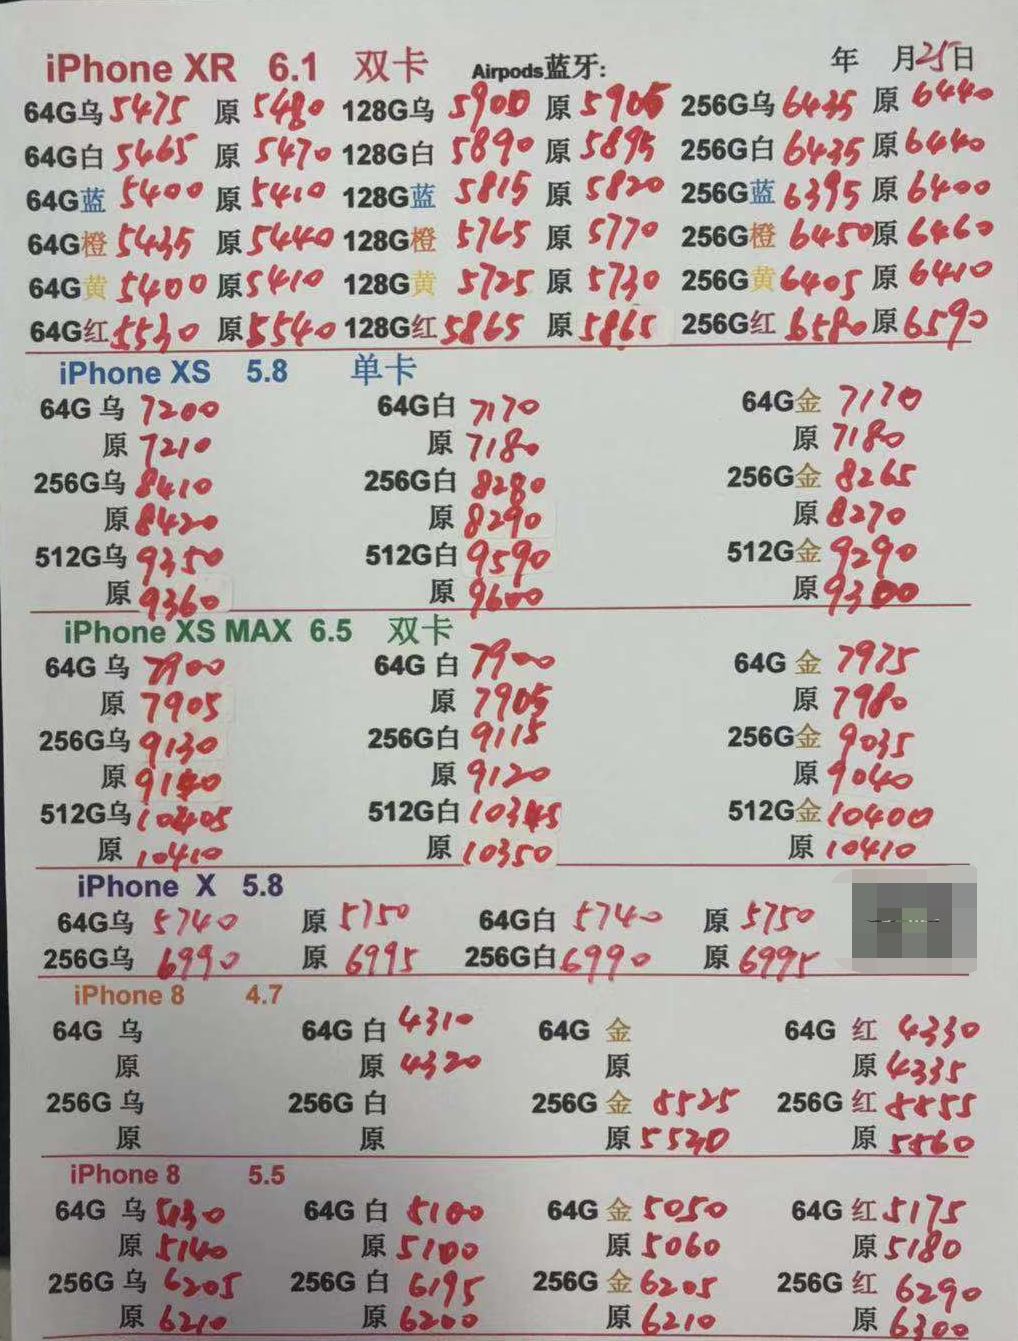 iPhone XR 6.1 双卡 Airpods蓝牙: 年 月25日
64G乌 5475 原 5480 128G乌 5900 原 5905 256G乌 6435 原 6440
64G白 5465 原 5470 128G白 5890 原 5895 256G白 6435 原 6440
64G蓝 5400 原 5410 128G蓝 5815 原 5820 256G蓝 6395 原 6400
64G橙 5435 原 5440 128G橙 5765 原 5770 256G橙 6450 原 6460
64G黄 5400 原 5410 128G黄 5725 原 5730 256G黄 6405 原 6410
64G红 5530 原 5540 128G红 5865 原 5865 256G红 6580 原 6590
iPhone XS 5.8 单卡
64G 乌 7200 64G白 7170 64G金 7170
原 7210 原 7180 原 7180
256G乌 8410 256G白 8280 256G金 8265
原 8420 原 8290 原 8270
512G乌 9350 512G白 9590 512G金 9290
原 9360 原 9600 原 9300
iPhone XS MAX 6.5 双卡
64G 乌 7900 64G 白 7900 64G 金 7975
原 7905 原 7905 原 7980
256G乌 9130 256G白 9115 256G金 9035
原 9140 原 9120 原 9040
512G乌 10405 512G白 10345 512G金 10400
原 10410 原 10350 原 10410
iPhone X 5.8
64G乌 5740 原 5750 64G白 5740 原 5750
256G乌 6990 原 6995 256G白 6990 原 6995
iPhone 8 4.7
64G 乌 64G 白 4310 64G 金 64G 红 4330
原 原 4320 原 原 4335
256G 乌 256G 白 256G 金 5525 256G 红 5855
原 原 原 5530 原 5560
iPhone 8 5.5
64G 乌 5130 64G 白 5100 64G 金 5050 64G 红 5175
原 5140 原 5100 原 5060 原 5180
256G 乌 6205 256G 白 6195 256G 金 6205 256G 红 6290
原 6210 原 6200 原 6210 原 6300